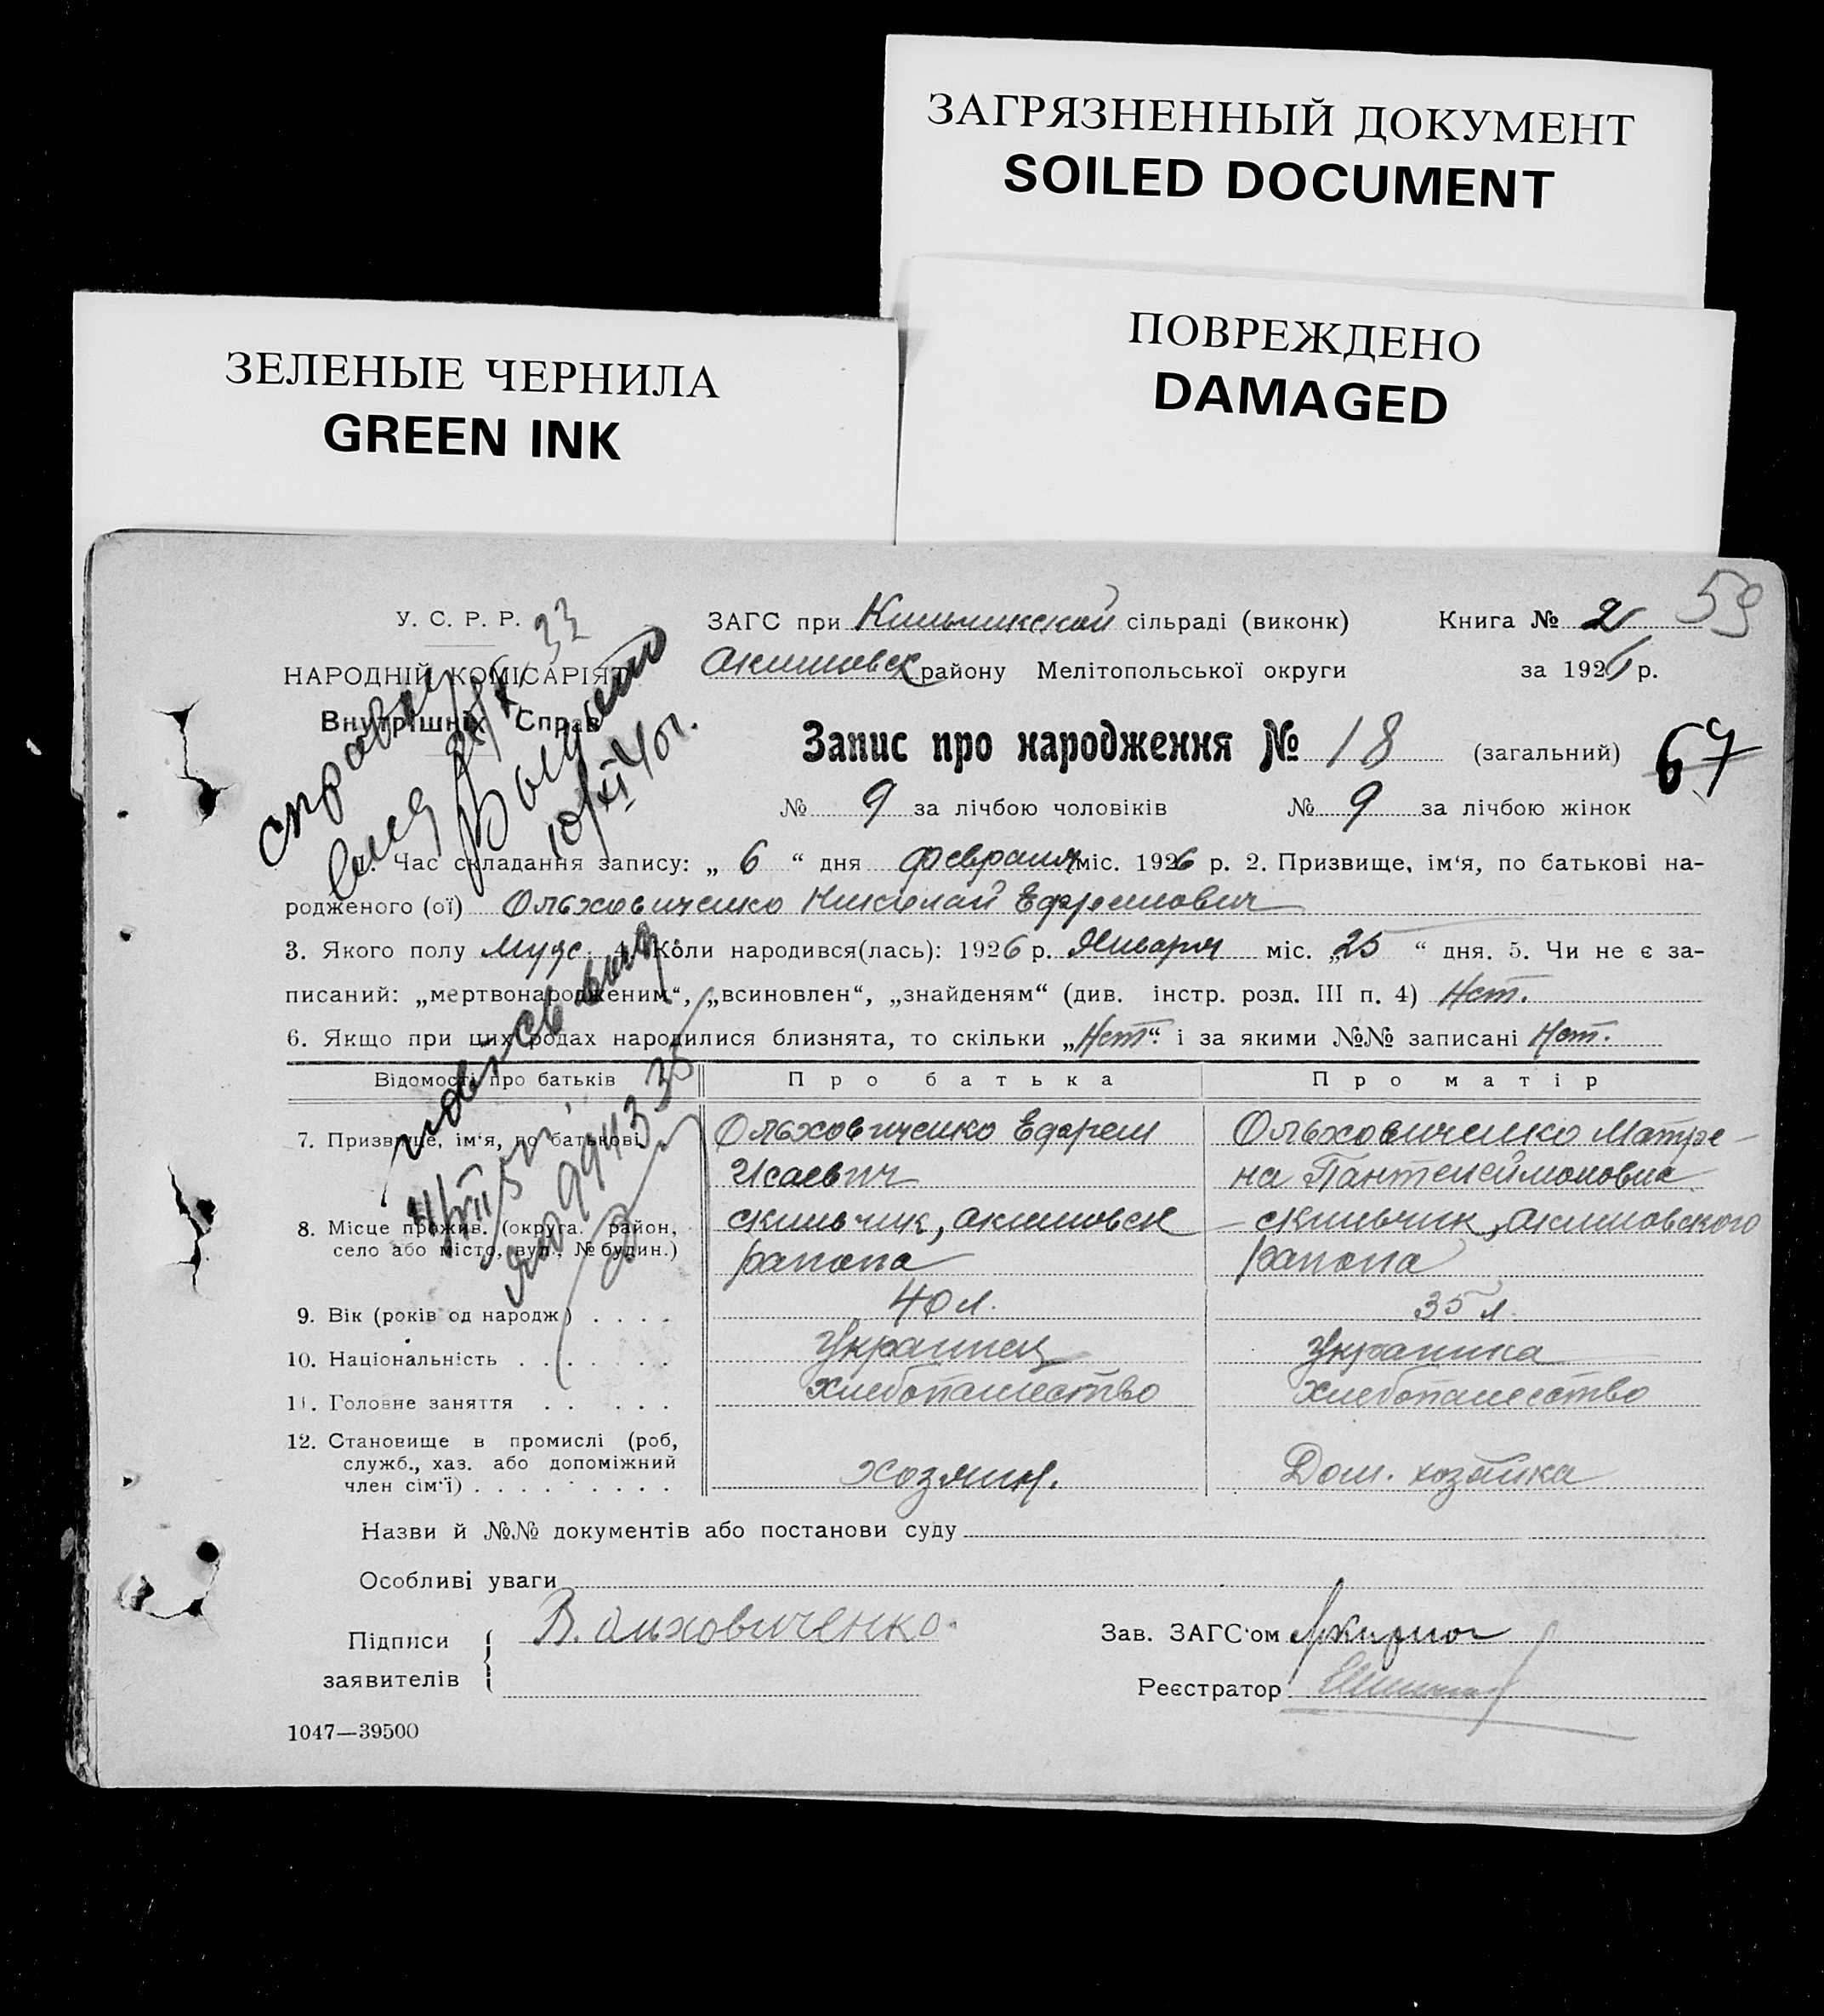 ЗАГРЯЗНЕННЫЙ ДОКУМЕНТ
SOILED DOCUMENT
ПОВРЕЖДЕНО
DAMAGED
ЗЕЛЕНЫЕ ЧЕРНИЛА
GREEN INK
59
У. С. Р. Р.
НАРОДНІЙ КОМІСАРІЯТ
Внутрішніх Справ
справка
10/XI 40г.
ЗАГС при сільраді (виконк) Книга № 2
Акимовск району Мелітопольської округи за 1926 р.
Запис про народження № 18 (загальний) 67
№ 9 за лічбою чоловіків № 9 за лічбою жінок
Час складання запису: „ 6 “ дня февраля міс. 1926 р. 2. Призвище, ім‘я, по батькові на-
родженого (ої) Ольховиченко Николай Ефремович
3. Якого полу Муж. 4. Коли народився(лась): 1926 р. Января міс. „25 “ дня. 5. Чи не є за-
писаний: „мертвонародженим“, „всиновлен“, „знайденям“ (див. інстр. розд. III п. 4) Нет.
6. Якщо при цих родах народилися близнята, то скільки „Нет“ і за якими №№ записані Нет.
Відомості про батьків Про батька Про матір
7. Призвище, ім‘я, по батькові Ольховиченко Ефрем Ольховиченко Матре-
Исаевич на Пантелеймоновна
8. Місце прожив. (округа. район, скильчик, акимовск скильчик, акимовского
село або місто, вул., № будин.) района района
9. Вік (років од народж) . . . . 40 л. 35 л.
10. Національність . . . . . . Украинец Украинка
11. Головне заняття . . . . . Хлебопашество Хлебопашество
12. Становище в промислі (роб,
служб., хаз. або допоміжний
член сім‘ї) . . . . . . . . . хозяин. Дом. хозяйка
Назви й №№ документів або постанови суду
Особливі уваги
Підписи В. Ольховиченко. Зав. ЗАГС‘ом
заявителів Реєстратор
1047—39500